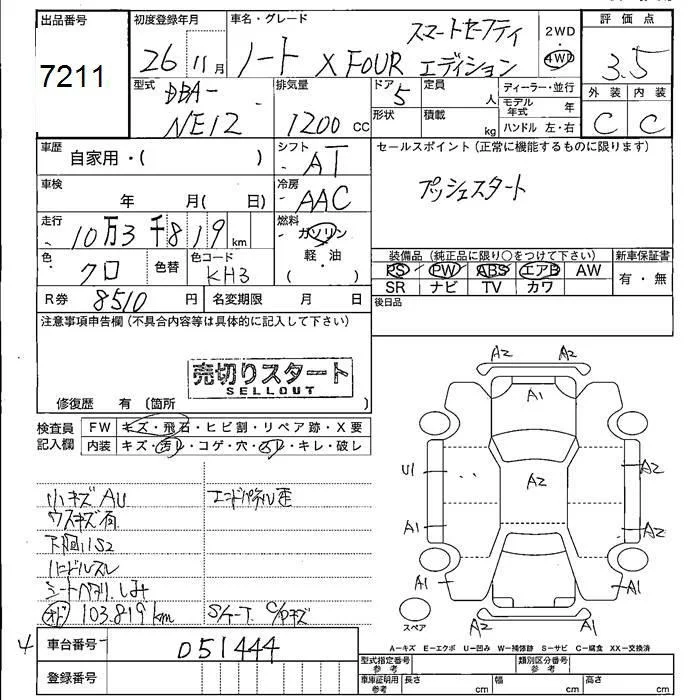 出品番号
7211
初度登録年月
26年11月
車名・グレード
ノート X FOUR スマートセーフティ
エディション
2WD
4WD
評価点
3.5
外装 内装
C C
型式
DBA-
NE12
排気量
1200 cc
ドア
5
定員
人
形状
積載
kg
ディーラー・並行
モデル年式 年
ハンドル 左・右
車歴
自家用・( )
シフト
AT
セールスポイント (正常に機能するものに限ります)
プッシュスタート
車検
年 月( 日)
冷房
AAC
走行
10万3千819 km
燃料
ガソリン
軽・油
( )
色
クロ
色替
色コード
KH3
装備品 (純正品に限り○をつけて下さい)
PS PW ABS エアB AW
SR ナビ TV カワ
新車保証書
有・無
R券 8510 円
名変期限 月 日
後日品
注意事項申告欄 (不具合内容等は具体的に記入して下さい)
売切りスタート
SELLOUT
修復歴 有 (箇所 )
検査員
記入欄
FW キズ・飛石・ヒビ割・リペア跡・X要
内装 キズ・汚れ・コゲ・穴・スレ・キレ・破レ
小キズAU
エンドパネル歪
ウスキズ有
下廻リS2
ハンドルスレ
シートヘタリ、しみ
オド 103.819km
A2 A2
A1
U1
A2
A2
A1
A2
A1
A1
A1 A1
スペア
4
車台番号
051444
登録番号
A-キズ E-エクボ U-凹み W-補修跡 S-サビ C-腐食 XX-交換済
型式指定番号
参考
類別区分番号
参考
車庫証明用
参考
長さ cm 幅 cm 高さ cm